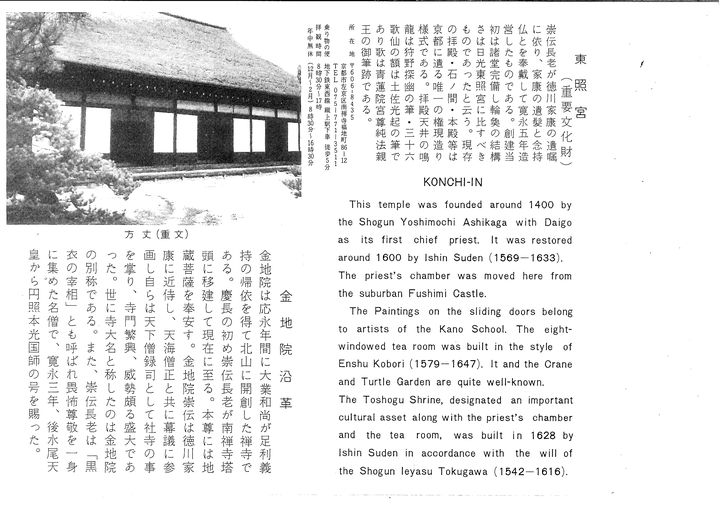 東照宮
(重要文化財)
崇伝長老が徳川家康の遺嘱
に依り、家康の遺髪と念持
仏とを奉戴して寛永五年造
営したものである。創建当
初は諸堂完備し輪奐の結構
さは日光東照宮に比すべき
ものであったと云う。現存
の拝殿・石ノ間・本殿等は
京都に遺る唯一の権現造り
様式である。拝殿天井の鳴
龍は狩野探幽の筆・三十六
歌仙の額は土佐光起の筆で
あり歌は青蓮院宮尊純法親
王の御筆跡である。
所在地 〒606-8435
京都市左京区南禅寺福地町86-12
TEL 075-771-3511
乗り物の便 地下鉄東西線 蹴上駅下車 徒歩5分
拝観時間 8時30分〜17時
年中無休 (12月〜2月) 8時30分〜16時30分
方丈(重文)
金地院沿革
金地院は応永年間に大業和尚が足利義
持の帰依を得て北山に開創した禅寺で
ある。慶長の初め崇伝長老が南禅寺塔
頭に移建して現在に至る。本尊には地
蔵菩薩を奉安す。金地院崇伝は徳川家
康に近侍し、天海僧正と共に幕議に参
画し自らは天下僧録司として社寺の事
を掌り、寺門繁興、威勢頗る盛大であ
った。世に寺大名と称したのは金地院
の別称である。また、崇伝長老は「黒
衣の宰相」とも呼ばれ畏怖尊敬を一身
に集めた名僧で、寛永三年、後水尾天
皇から円照本光国師の号を賜った。
KONCHI-IN
This temple was founded around 1400 by
the Shogun Yoshimochi Ashikaga with Daigo
as its first chief priest. It was restored
around 1600 by Ishin Suden (1569—1633).
The priest's chamber was moved here from
the suburban Fushimi Castle.
The Paintings on the sliding doors belong
to artists of the Kano School. The eight-
windowed tea room was built in the style of
Enshu Kobori (1579—1647). It and the Crane
and Turtle Garden are quite well-known.
The Toshogu Shrine, designated an important
cultural asset along with the priest's chamber
and the tea room, was built in 1628 by
Ishin Suden in accordance with the will of
the Shogun Ieyasu Tokugawa (1542—1616).